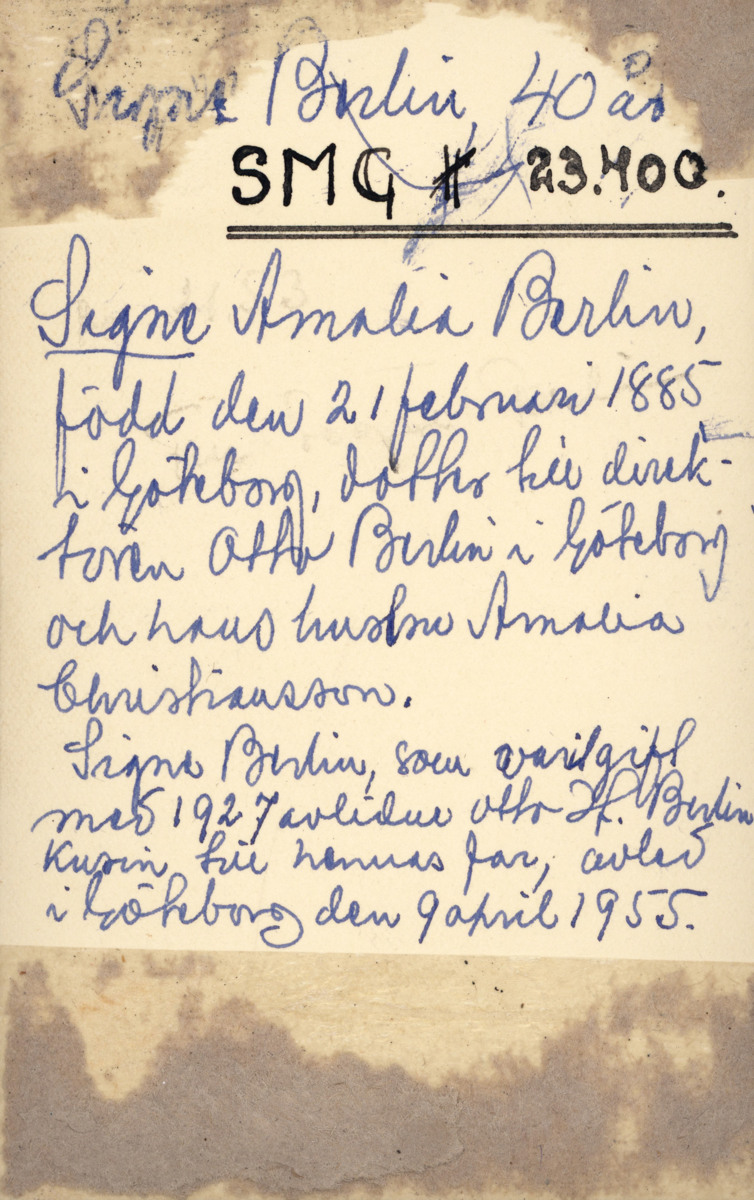 Signe Berlin, 40 år
SMG # 23.400.
Signe Amalia Berlin,
född den 21 februari 1885
i Göteborg, dotter till direk-
tören Otto Berlin i Göteborg
och hans hustru Amalia
Christiansson.
Signe Berlin, som varit gift
med 1927 avlidne Otto H. Berlin
kusin till hennes far, avled
i Göteborg den 9 april 1955.